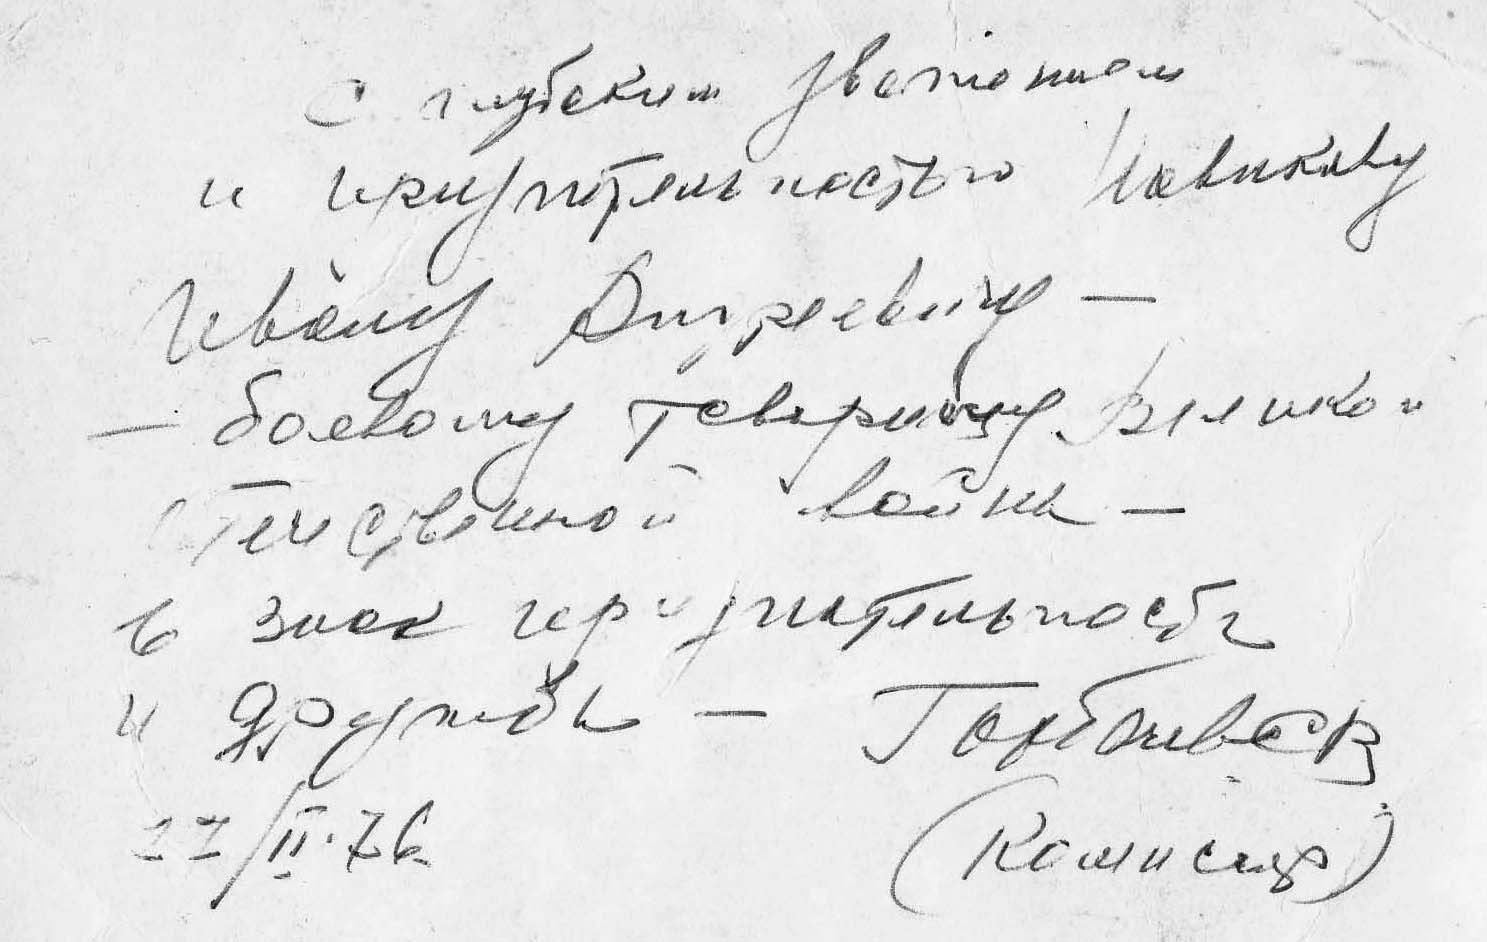 С глубоким уважением
и признательностью Новикову
Ивану Андреевичу —
— боевому товарищу Великой
Отечественной войны —
в знак признательности
и дружбы —
/II.76
(Комиссар)